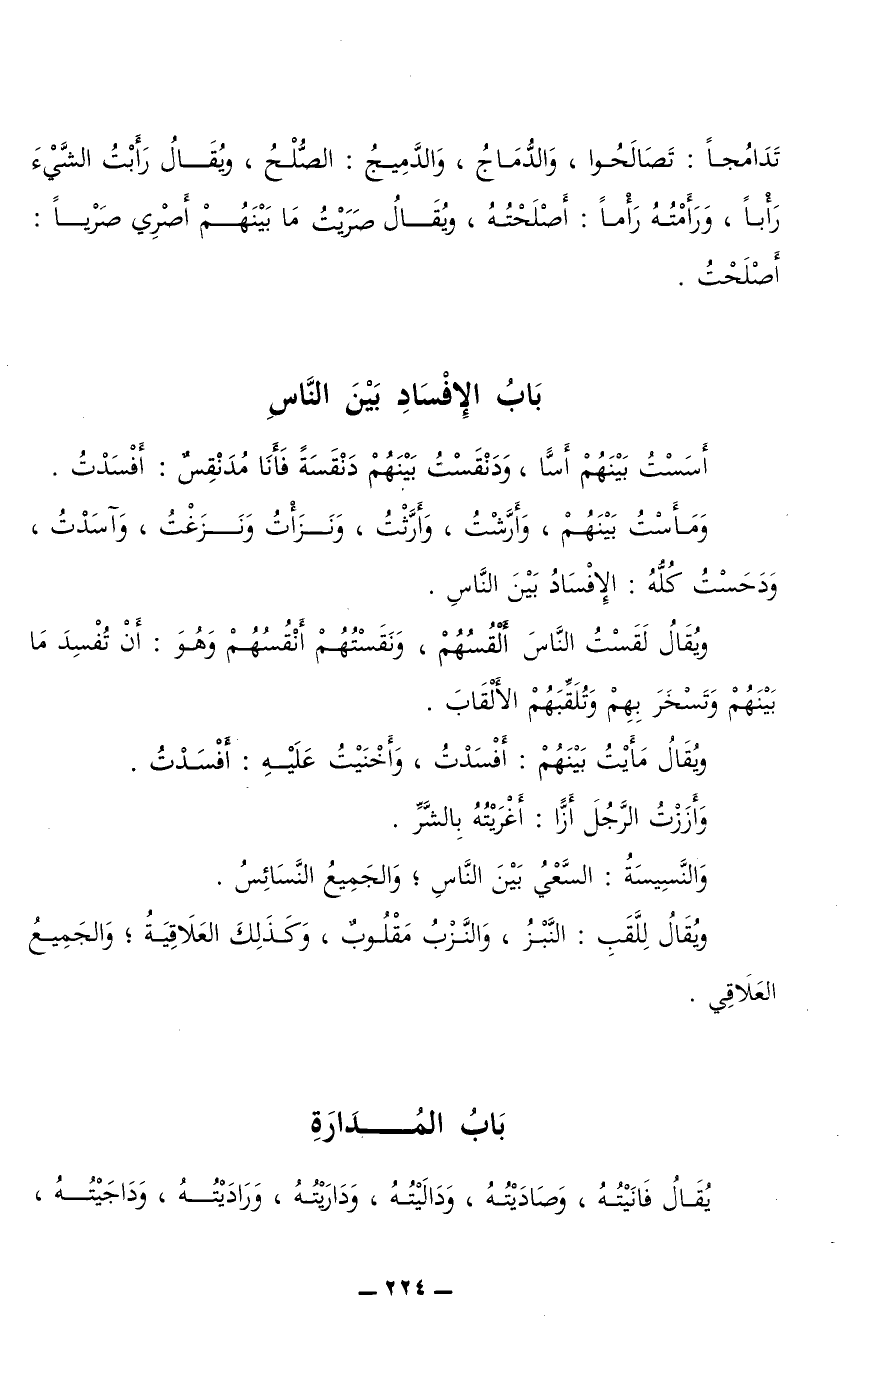 تَدَامُجاً : تَصَالَحُوا ، وَالدُّمَاجُ ، وَالدَّمِيجُ : الصُّلْحُ ، ويُقَالُ رَأَبْتُ الشَّيْءَ
رَأْباً ، وَرَأَمْتُهُ رَأْماً : أَصْلَحْتُهُ ، ويُقَالُ صَرَيْتُ مَا بَيْنَهُمْ أَصْرِي صَرْياً :
أَصْلَحْتُ .
بَابُ الإِفْسَادِ بَيْنَ النَّاسِ
أَسَسْتُ بَيْنَهُمْ أَسًّا ، وَدَنْقَسْتُ بَيْنَهُمْ دَنْقَسَةً فَأَنَا مُدَنْقِسٌ : أَفْسَدْتُ .
وَمَأَسْتُ بَيْنَهُمْ ، وَأَرَّشْتُ ، وَأَرَّثْتُ ، وَنَزَأْتُ وَنَزَغْتُ ، وَآسَدْتُ ،
وَدَحَسْتُ كُلُّهُ : الإِفْسَادُ بَيْنَ النَّاسِ .
ويُقَالُ لَقَسْتُ النَّاسَ أَلْقُسُهُمْ ، وَنَقَسْتُهُمْ أَنْقُسُهُمْ وَهُوَ : أَنْ تُفْسِدَ مَا
بَيْنَهُمْ وَتَسْخَرَ بِهِمْ وَتُلَقِّبَهُمْ الأَلْقَابَ .
ويُقَالُ مَأَيْتُ بَيْنَهُمْ : أَفْسَدْتُ ، وَأَخْنَيْتُ عَلَيْهِ : أَفْسَدْتُ .
وَأَزَزْتُ الرَّجُلَ أَزًّا : أَغْرَيْتُهُ بِالشَّرِّ .
وَالنَّسِيسَةُ : السَّعْيُ بَيْنَ النَّاسِ ؛ وَالجَمِيعُ النَّسَائِسُ .
ويُقَالُ لِلَّقَبِ : النَّبْزُ ، وَالنَّزْبُ مَقْلُوبٌ ، وَكَذَلِكَ العَلَاقِيَةُ ؛ وَالجَمِيعُ
العَلَاقِي .
بَابُ المُدَارَةِ
يُقَالُ فَانَيْتُهُ ، وَصَادَيْتُهُ ، وَدَالَيْتُهُ ، وَدَارَيْتُهُ ، وَرَادَيْتُهُ ، وَدَاجَيْتُهُ ،
— ٢٢٤ —